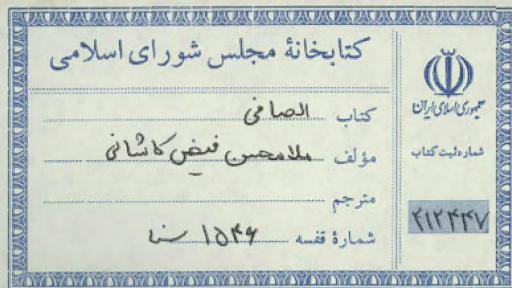 کتابخانهٔ مجلس شورای اسلامی
کتاب الصافی
مؤلف ملامحسن فیض کاشانی
مترجم
شمارهٔ قفسه ۱۵۴۶
جمهوری اسلامی ایران
شماره ثبت کتاب
۲۱۲۴۴۷